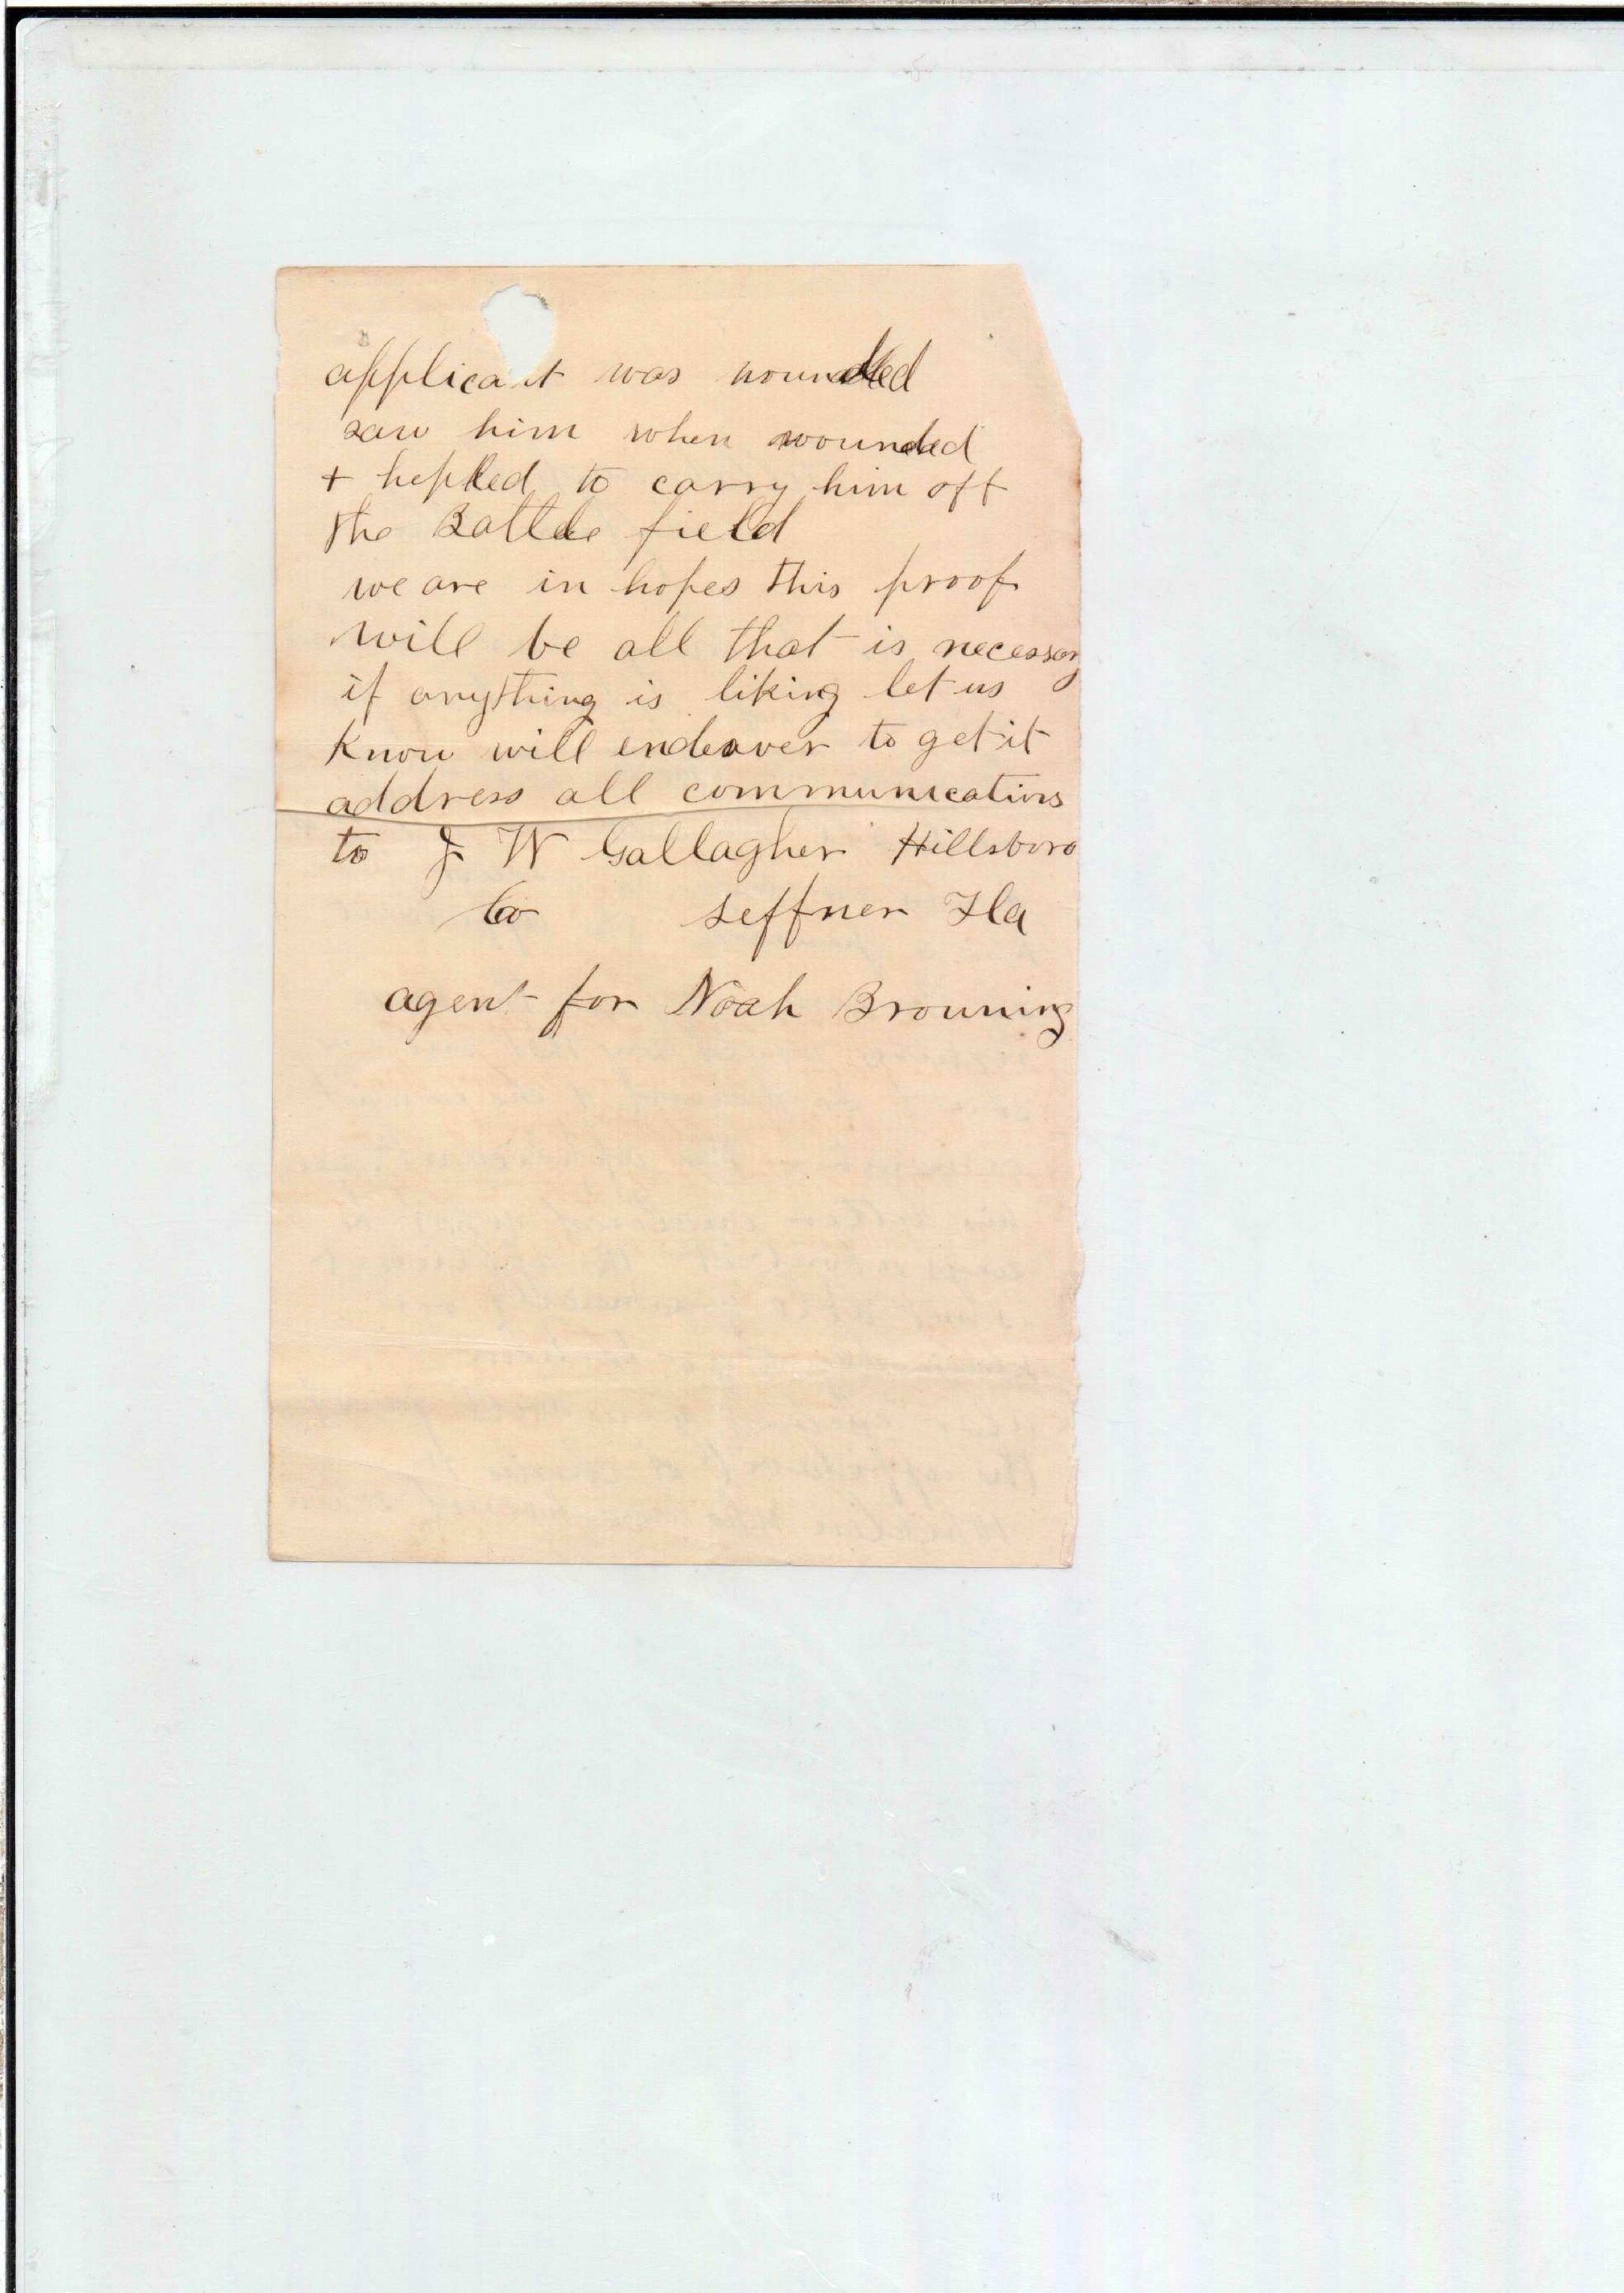 applicant was wounded
saw him when wounded
+ hepled to carry him off
the Battle field
we are in hopes this proof
will be all that is necessary
if anything is liking let us
know will endeaver to get it
address all communications
to J W Gallagher Hillsboro
Co Seffner Fla
agent for Noah Browning